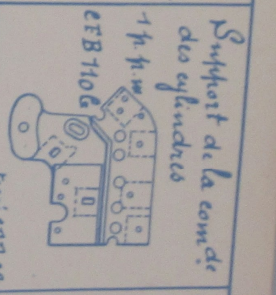 Support de la com de
des cylindres
1 p. p. m
CFB 110G